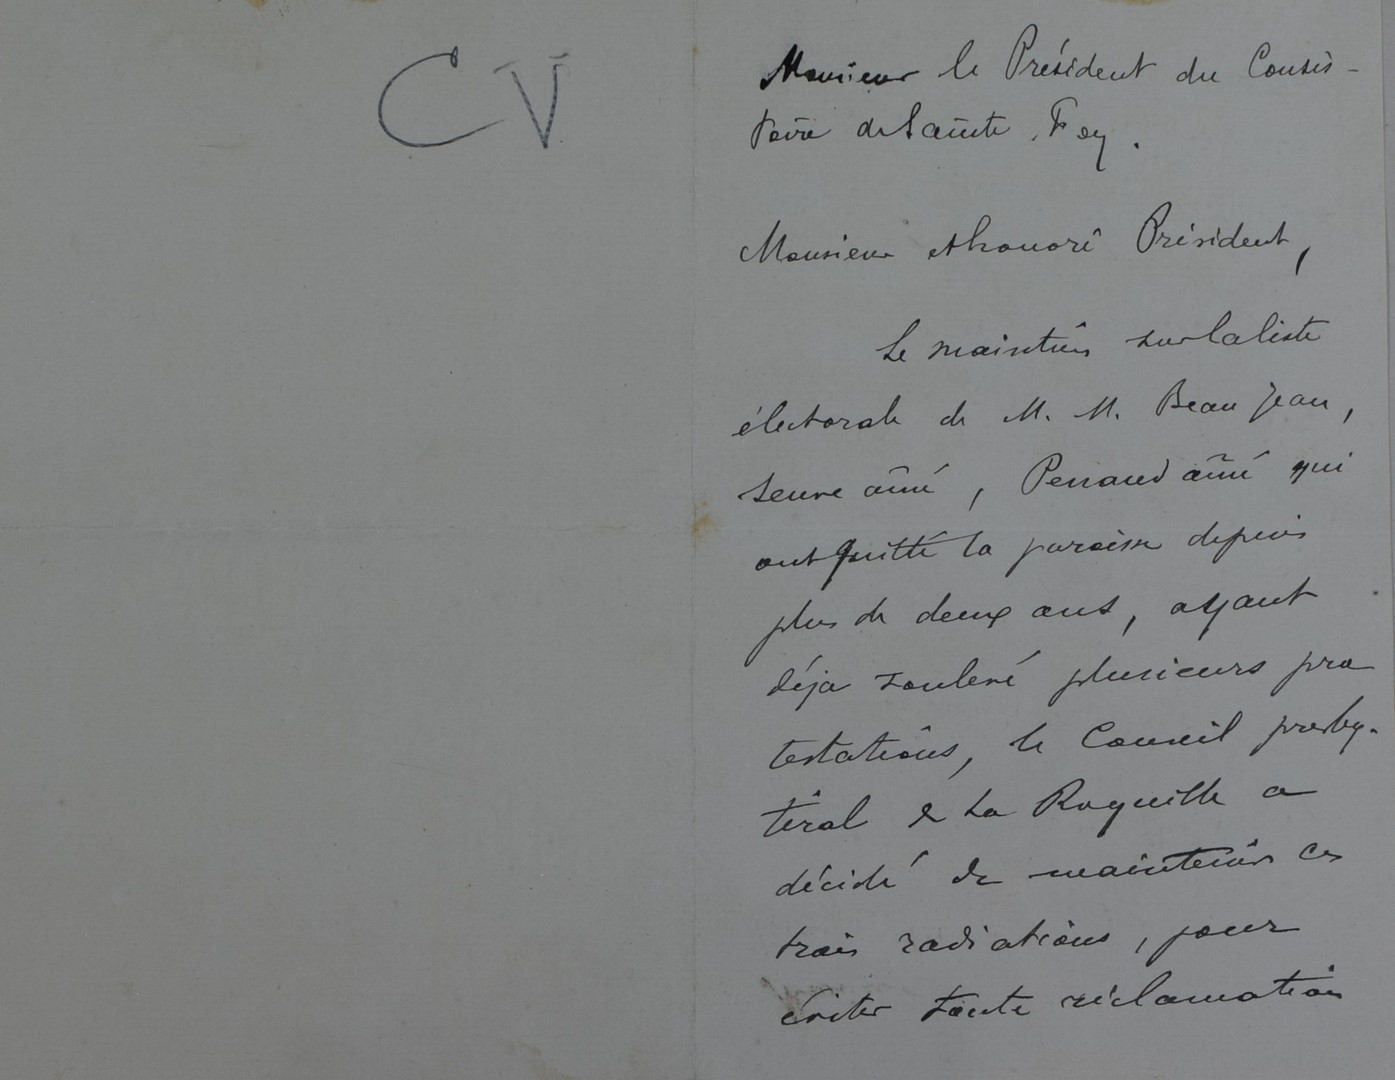 CV
Monsieur le Président du Consis-
toire de Sainte Foy.
Monsieur et honoré Président,
Le maintien sur la liste
électorale de M. M. Beau Jean,
Seure aîné, Penaud aîné qui
ont quitté la paroisse depuis
plus de deux ans, ayant
déja soulevé plusieurs pro
testations, le Conseil presby-
téral de La Roquille a
décidé de maintenir ces
trois radiations, pour
éviter toute réclamation